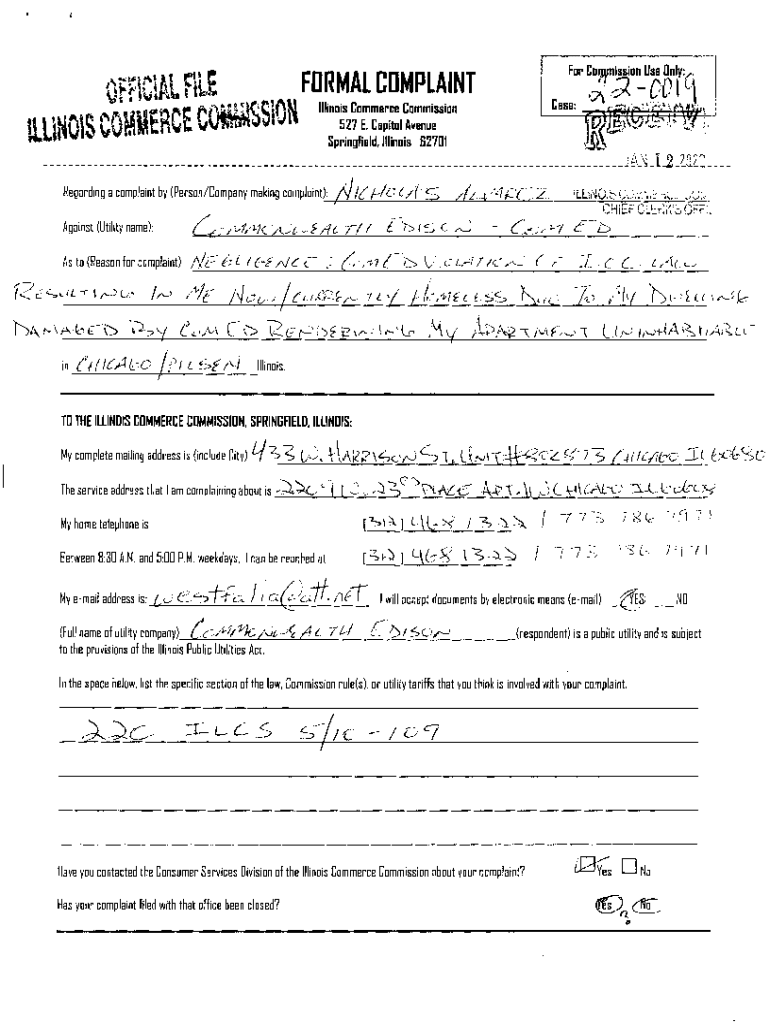 OFFICIAL FILE
ILLINOIS COMMERCE COMMISSION
FORMAL COMPLAINT
Illinois Commerce Commission
527 E. Capitol Avenue
Springfield, Illinois 62701
For Commission Use Only:
Case: 22-0019
RECEIVED
JAN 12 2022
ILLINOIS COMMERCE COMM
CHIEF CLERK'S OFFICE
Regarding a complaint by (Person/Company making complaint): NICHOLAS ALVAREZ
Against (Utility name): COMMONWEALTH EDISON - COM ED
As to (Reason for complaint) NEGLIGENCE : COMED VIOLATION OF I.C.C. LAW
RESULTING IN ME NOW/CURRENTLY HOMELESS DUE TO MY DWELLING
DAMAGED BY COMED RENDERINING MY APARTMENT UNINHABITABLE
in CHICAGO/PILSEN Illinois.
TO THE ILLINOIS COMMERCE COMMISSION, SPRINGFIELD, ILLINOIS:
My complete mailing address is (include City) 433 W. HARRISON ST, UNIT# 802873 CHICAGO IL 60680
The service address that I am complaining about is 23RD PLACE APT. CHICAGO IL
My home telephone is [312] 468 1322 / 773 786 7971
Between 8:30 A.M. and 5:00 P.M. weekdays, I can be reached at [312] 468 1322 / 773 786 7971
My e-mail address is: westfalia@att.net I will accept documents by electronic means (e-mail) YES NO
(Full name of utility company) COMMONWEALTH EDISON (respondent) is a public utility and is subject
to the provisions of the Illinois Public Utilities Act.
In the space below, list the specific section of the law, Commission rule(s), or utility tariffs that you think is involved with your complaint.
220 ILCS 5/10-109
Have you contacted the Consumer Services Division of the Illinois Commerce Commission about your complaint? Yes No
Has your complaint filed with that office been closed? Yes ? No